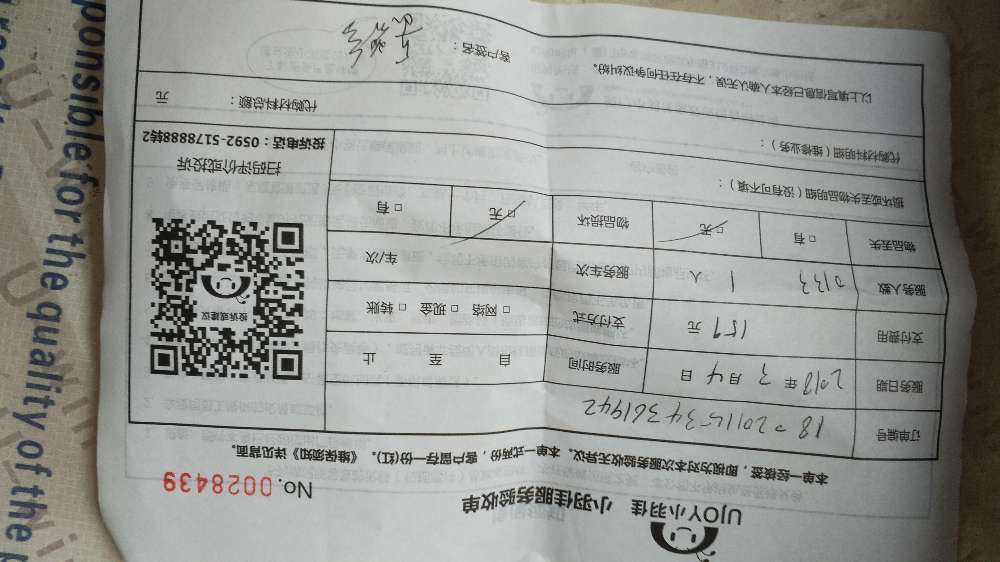 UJOY小羽佳 小羽佳服务验收单
No. 0028439
本单一经接签，即视为对本次服务验收无异议。本单一式两份，客户留存一份(红)。《维保须知》详见背面。
订单编号
服务日期 2018 年 月 4 日 服务时间 自 至 止
支付费用 159 元 支付方式 □ 网络 □ 现金 □ 转账
服务人数 0133 1 人 服务车次 车/次
物品丢失 □ 有 □ 无 物品损坏 □ 无 □ 有
损坏或丢失物品明细（没有可不填）：
代购材料明细（维修业务）：
代购材料总额： 元
以上填写信息已经本人确认无误，不存在任何争议纠纷。
客户签名：
投诉或建议
扫码评价或投诉
投诉电话：0592-5178888转2
ponsible for the quality of the p